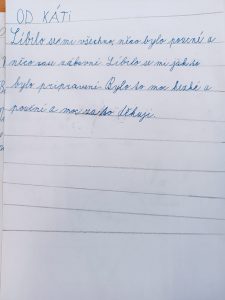 OD KÁTI
Líbilo se mi všechno, něco bylo poučné a
něco zas zábavné. Líbilo se mi jak to
bylo připravené. Bylo to moc hezké a
poučné a moc za to děkuji.